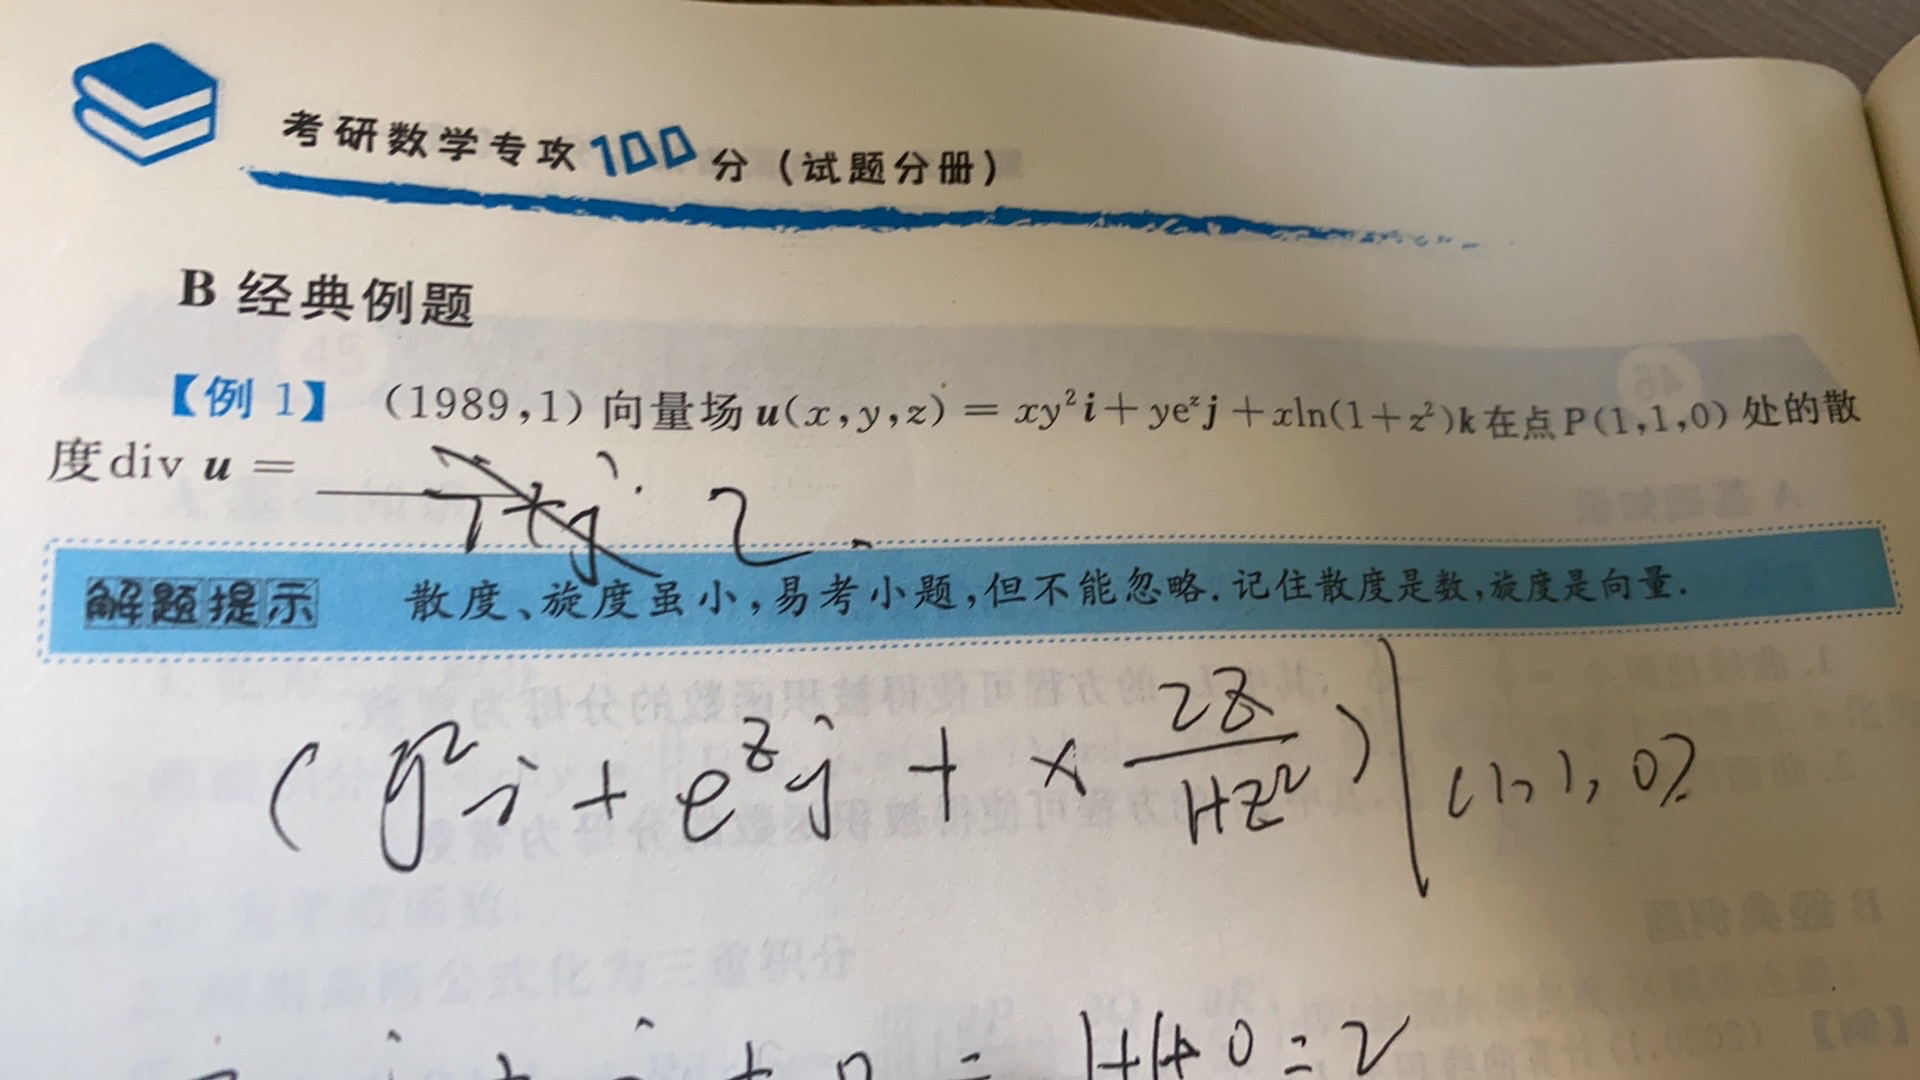 考研数学专攻100分(试题分册)
B 经典例题
【例 1】 (1989,1) 向量场 u(x,y,z) = xy²i + yeᶻj + xln(1+z²)k 在点 P(1,1,0) 处的散
度 div u = ______
i+j. 2.
解题提示 散度、旋度虽小,易考小题,但不能忽略.记住散度是数,旋度是向量.
(y²i + eᶻj + x 2z/1+z²)|(1,1,0)
= 1+1+0=2